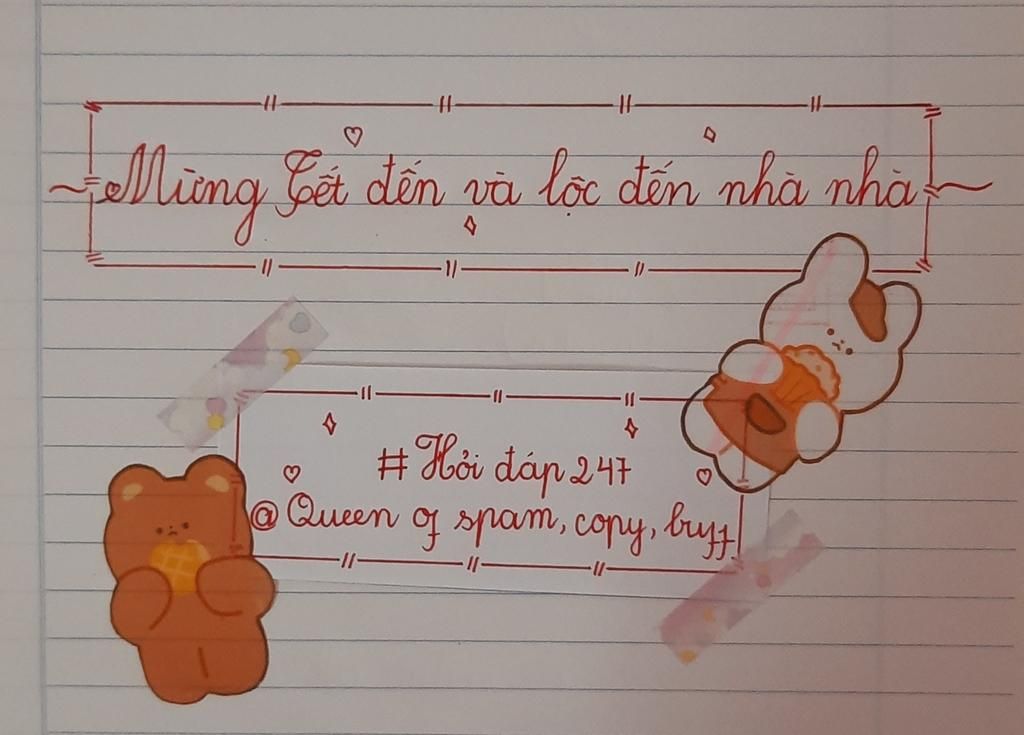 Mừng Tết đến và lộc đến nhà nhà
# Hỏi đáp 247
@ Queen of spam, copy, buff